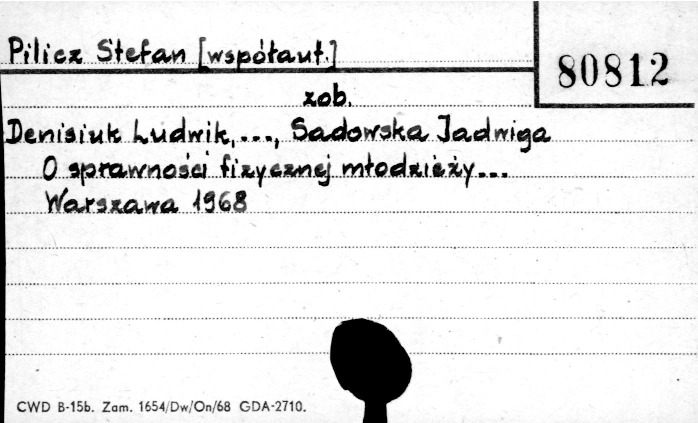 Pilicz Stefan [współaut.]
80812
zob.
Denisiuk Ludwik,..., Sadowska Jadwiga
O sprawności fizycznej młodzieży...
Warszawa 1968
CWD B-15b. Zam. 1654/Dw/On/68 GDA-2710.